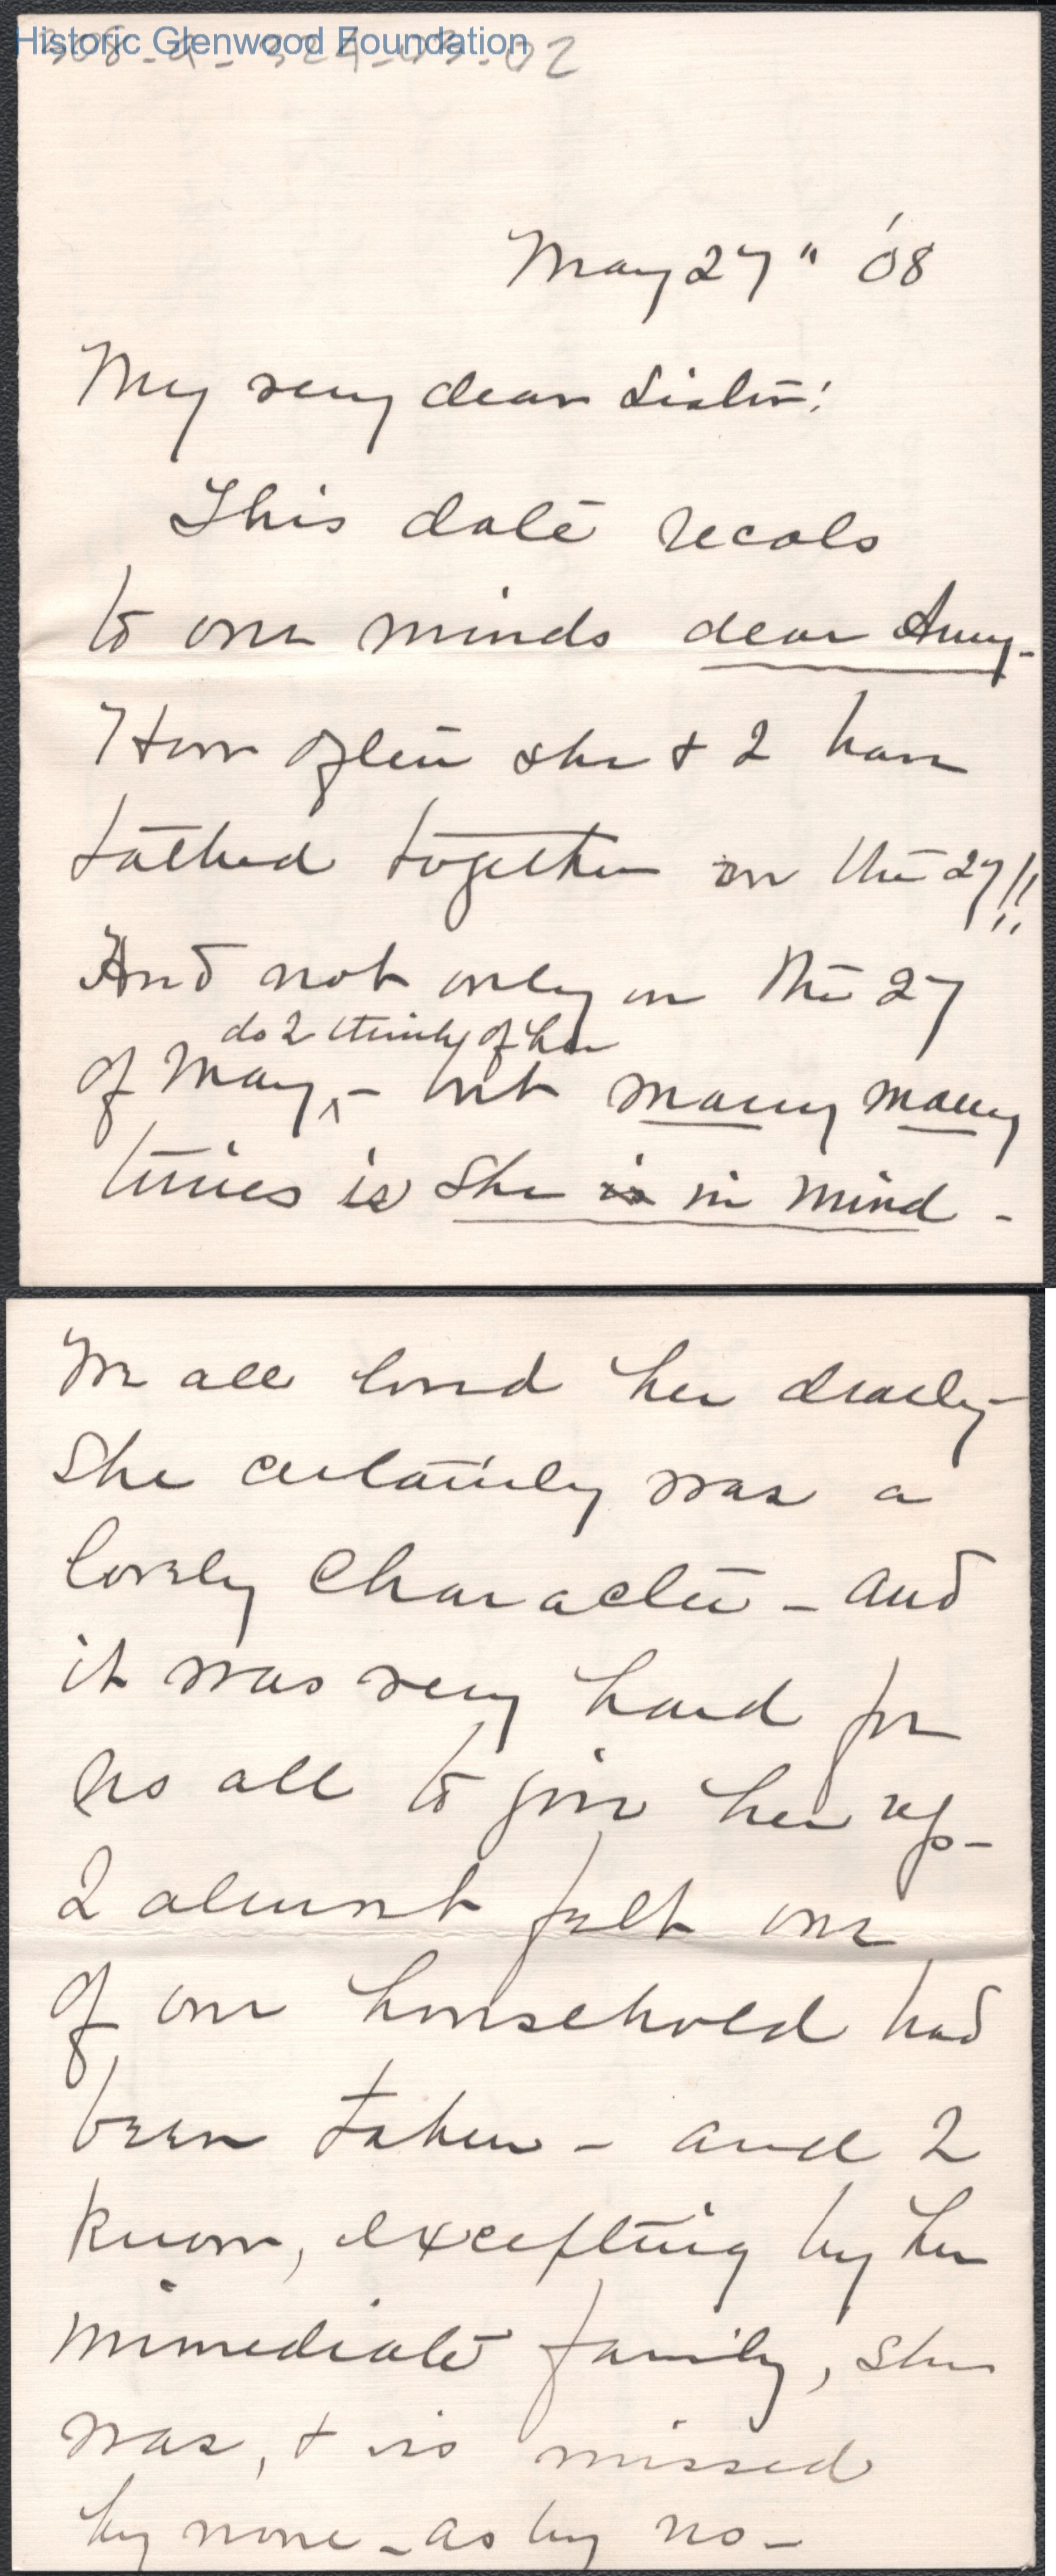 Historic Glenwood Foundation
308-a-324-03-02
May 27" '08
My very dear Sister:
This date recals
to our minds dear Amy-
How often she + I have
talked together on the 27!!
And not only on the 27
do I think of her
of May, - but many many
times is she is in mind -
We all loved her dearly-
She certainly was a
lovely character - and
it was very hard for
us all to give her up-
I almost felt one
of our household had
been taken - and I
know, excepting by her
immediate family, she
was, + is missed
by none - as by us -